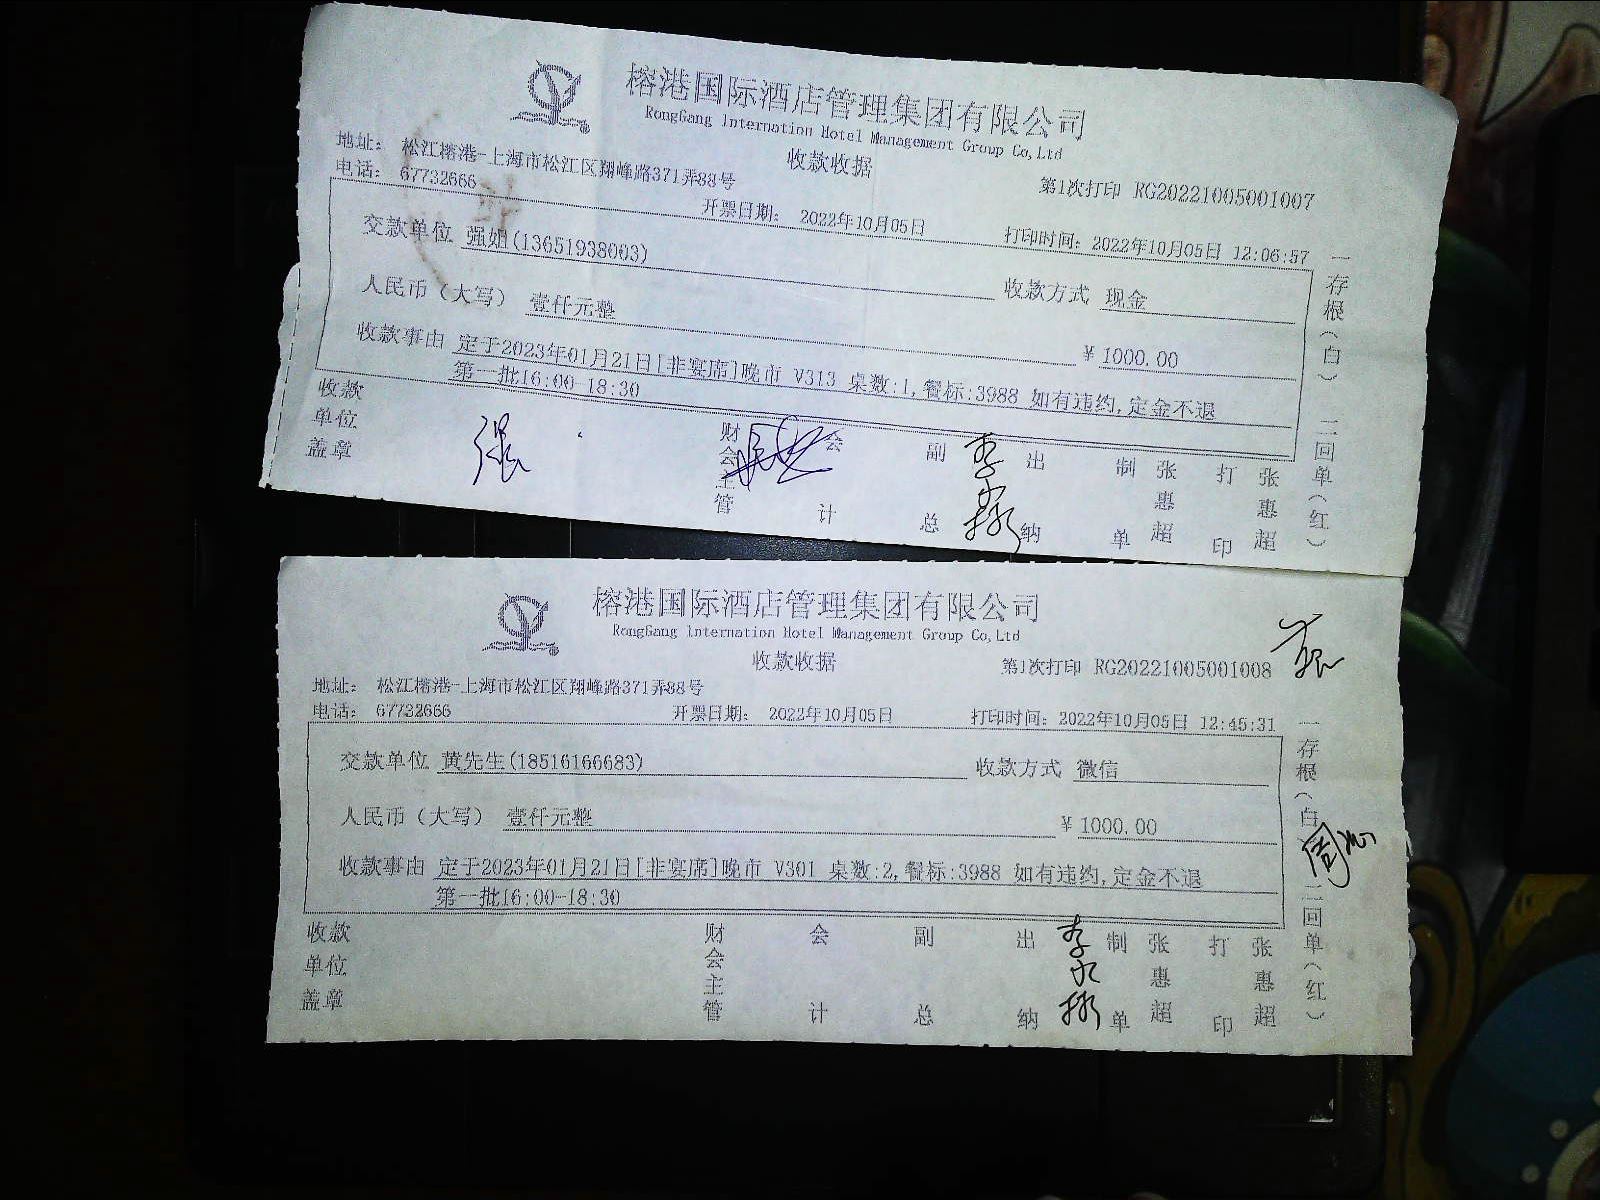 榕港国际酒店管理集团有限公司
RongGang Internation Hotel Management Group Co,Ltd
收款收据
地址： 松江榕港-上海市松江区翔峰路371弄88号
第1次打印 RG20221005001007
电话： 67732666
开票日期： 2022年10月05日
打印时间：2022年10月05日 12:06:57
交款单位 强姐(13651938003)
收款方式 现金
人民币（大写） 壹仟元整
¥1000.00
收款事由 定于2023年01月21日[非宴席]晚市 V313 桌数:1,餐标:3988 如有违约,定金不退
第一批16:00-18:30
收款单位盖章
财会主管
会计
副总
出纳
制单 张惠超
打印 张惠超
一存根（白） 二回单（红）
榕港国际酒店管理集团有限公司
RongGang Internation Hotel Management Group Co,Ltd
收款收据
第1次打印 RG20221005001008
地址： 松江榕港-上海市松江区翔峰路371弄88号
电话： 67732666
开票日期： 2022年10月05日
打印时间：2022年10月05日 12:45:31
交款单位 黄先生(18516166683)
收款方式 微信
人民币（大写） 壹仟元整
¥1000.00
收款事由 定于2023年01月21日[非宴席]晚市 V301 桌数:2,餐标:3988 如有违约,定金不退
第一批16:00-18:30
收款单位盖章
财会主管
会计
副总
出纳
制单 张惠超
打印 张惠超
一存根（白） 二回单（红）